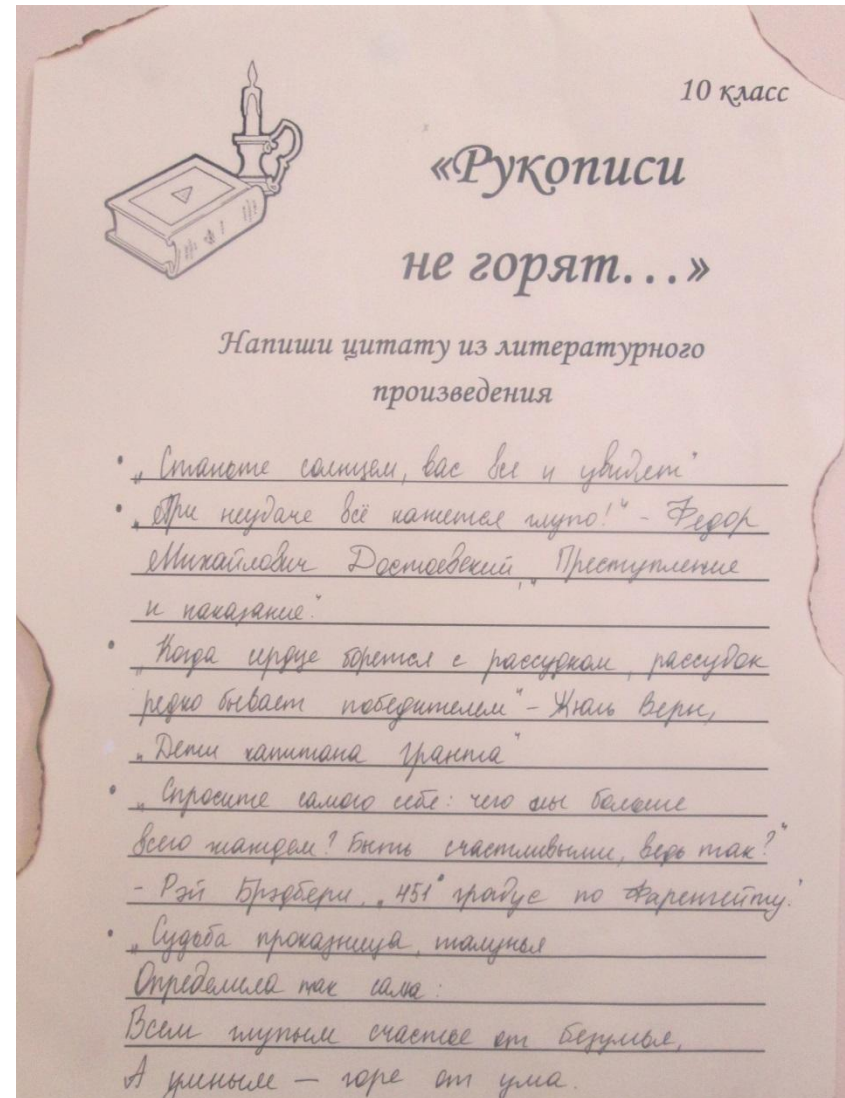 10 класс
«Рукописи
не горят...»
Напиши цитату из литературного
произведения
• „Станьте солнцем, вас все и увидят"
• „При неудаче всё кажется глупо!" - Федор
Михайлович Достоевский, „Преступление
и наказание".
• „Когда сердце борется с рассудком, рассудок
редко бывает победителем" - Жюль Верн,
„Дети капитана Гранта"
• „Спросите самого себе: чего мы больше
всего жаждем? Быть счастливыми, ведь так?"
- Рэй Брэдбери, „451° градус по Фаренгейту".
• „Судьба проказница, шалунья
Определила так сама:
Всем глупым счастье от безумья,
А умным — горе от ума.